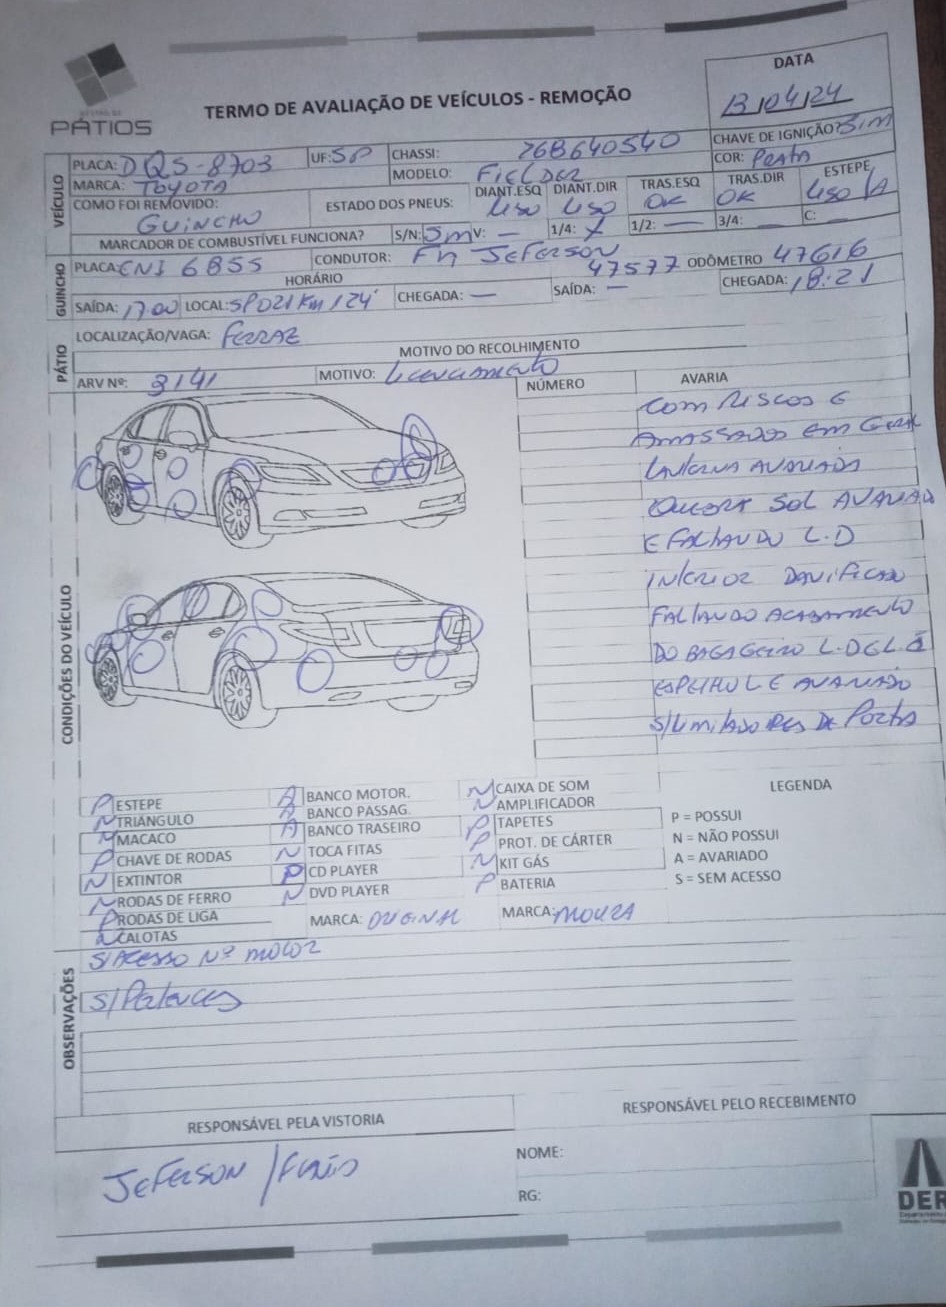 PÁTIOS
TERMO DE AVALIAÇÃO DE VEÍCULOS - REMOÇÃO
DATA
13/04/24
CHAVE DE IGNIÇÃO? Sim
VEÍCULO
PLACA: DQS-8703 UF: SP CHASSI: 76B640540 COR: Prata
MARCA: TOYOTA MODELO: FIELDER
COMO FOI REMOVIDO: GUINCHO
ESTADO DOS PNEUS: DIANT.ESQ USO DIANT.DIR USO TRAS.ESQ OK TRAS.DIR OK ESTEPE USO
MARCADOR DE COMBUSTÍVEL FUNCIONA? S/N: Sim V: — 1/4: X 1/2: — 3/4: — C: —
GUINCHO
PLACA: ENI 6855 CONDUTOR: JEFERSON 47577 ODÔMETRO 47616
HORÁRIO
SAÍDA: 17:00 LOCAL: SP021 Km 124 CHEGADA: — SAÍDA: — CHEGADA: 18:21
PÁTIO
LOCALIZAÇÃO/VAGA: FERRAZ
MOTIVO DO RECOLHIMENTO
ARV Nº: 3141 MOTIVO: Licenciamento
CONDIÇÕES DO VEÍCULO
NÚMERO AVARIA
COM RISCOS E
AMASSADOS EM GERAL
LANTERNA AVARIADA
QUEBRA SOL AVARIADO
E FALTANDO L.D
INTERIOR DANIFICADO
FALTANDO ACABAMENTO
DO BAGAGEIRO L.D E L.E
ESPELHO L E AVARIADO
S/LIMITADORES DE PORTA
P ESTEPE
N TRIÂNGULO
N MACACO
P CHAVE DE RODAS
N EXTINTOR
N RODAS DE FERRO
P RODAS DE LIGA
N CALOTAS
A BANCO MOTOR.
A BANCO PASSAG.
A BANCO TRASEIRO
N TOCA FITAS
P CD PLAYER
N DVD PLAYER
MARCA: ORIGINAL
N CAIXA DE SOM
N AMPLIFICADOR
P TAPETES
P PROT. DE CÁRTER
N KIT GÁS
P BATERIA
MARCA: MOURA
LEGENDA
P = POSSUI
N = NÃO POSSUI
A = AVARIADO
S = SEM ACESSO
OBSERVAÇÕES
S/ACESSO Nº MOTOR
S/Pertences
RESPONSÁVEL PELA VISTORIA
JEFERSON /
RESPONSÁVEL PELO RECEBIMENTO
NOME:
RG:
DER